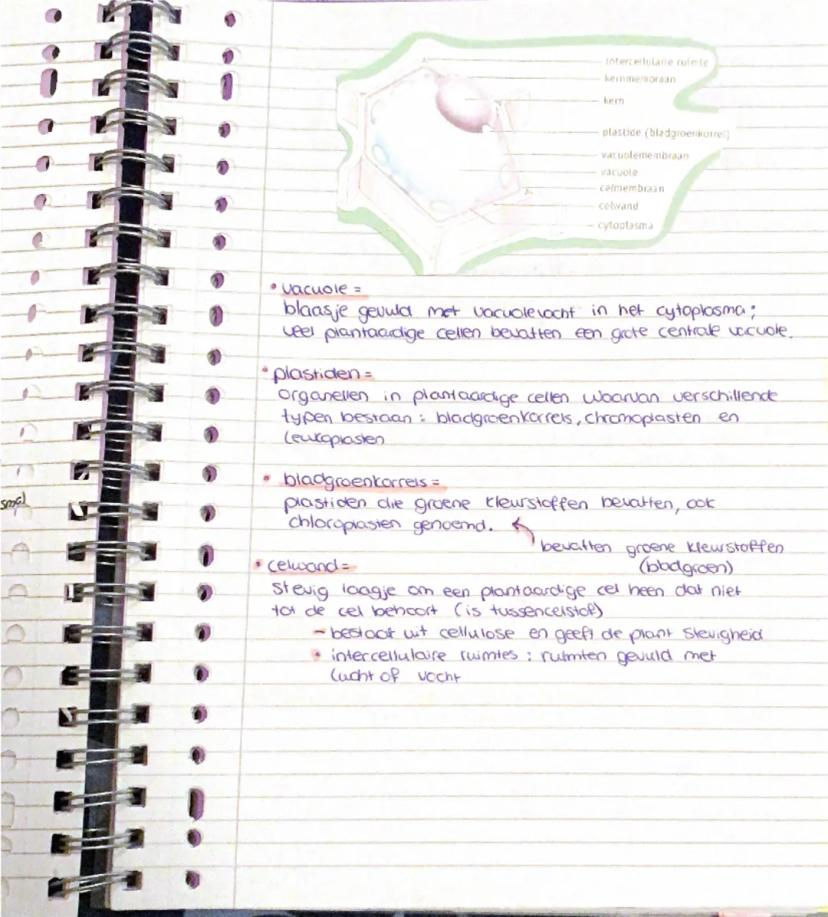 intercellulaire ruimte
kernmembraan
kern
plastide (bladgroenkorrel)
vacuolemembraan
vacuole
celmembraan
celwand
cytoplasma
• vacuole =
blaasje gevuld met vacuolevocht in het cytoplasma;
veel plantaardige cellen bevatten een grote centrale vacuole.
• plastiden =
organellen in plantaardige cellen waarvan verschillende
typen bestaan : bladgroenkorrels, chromoplasten en
leukoplasten
• bladgroenkorrels =
plastiden die groene kleurstoffen bevatten, ook
chloroplasten genoemd.
bevatten groene kleurstoffen
(bladgroen)
smal
• celwand =
stevig laagje om een plantaardige cel heen dat niet
tot de cel behoort (is tussencelstof)
- bestaat uit cellulose en geeft de plant stevigheid
• intercellulaire ruimtes : ruimten gevuld met
lucht of vocht